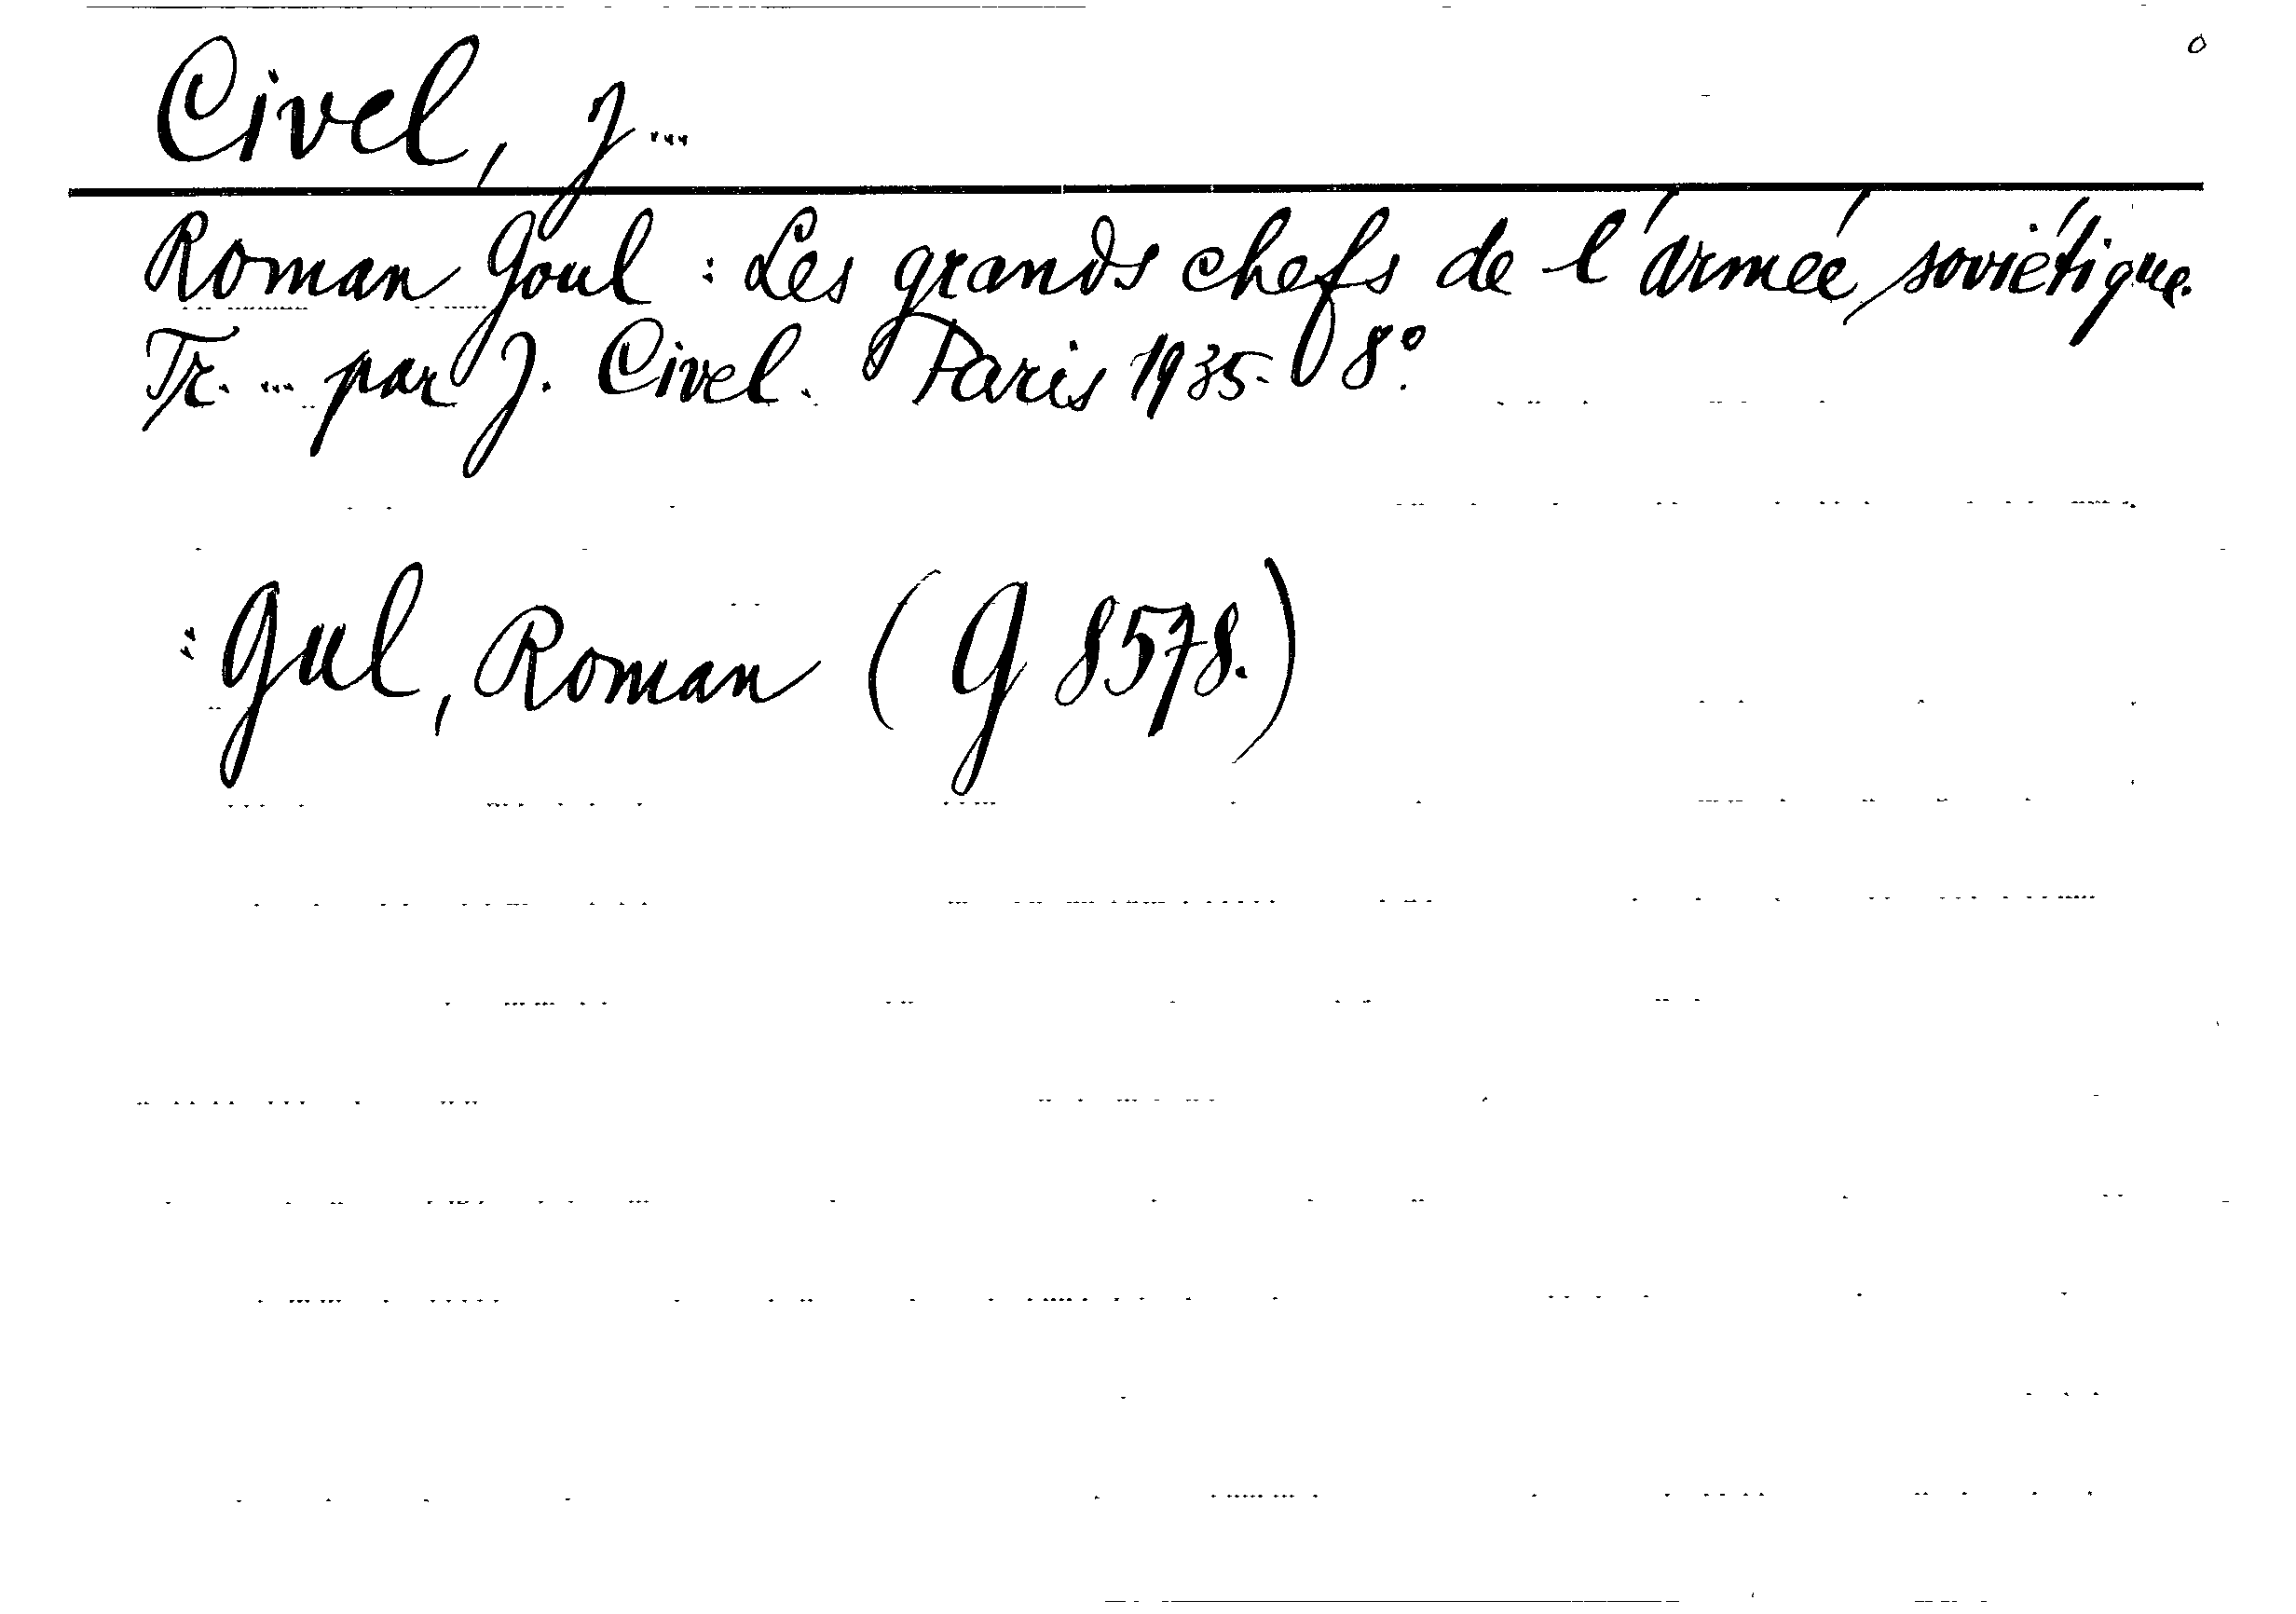 Civel, J...
Roman Goul : Les grands chefs de l'armée soviétique.
Tr. ... par J. Civel. Paris 1935. 8°.
: Gul, Roman (G 8578.)